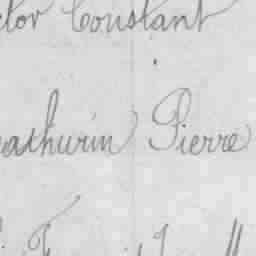 ctor Constant
athurin Pierre